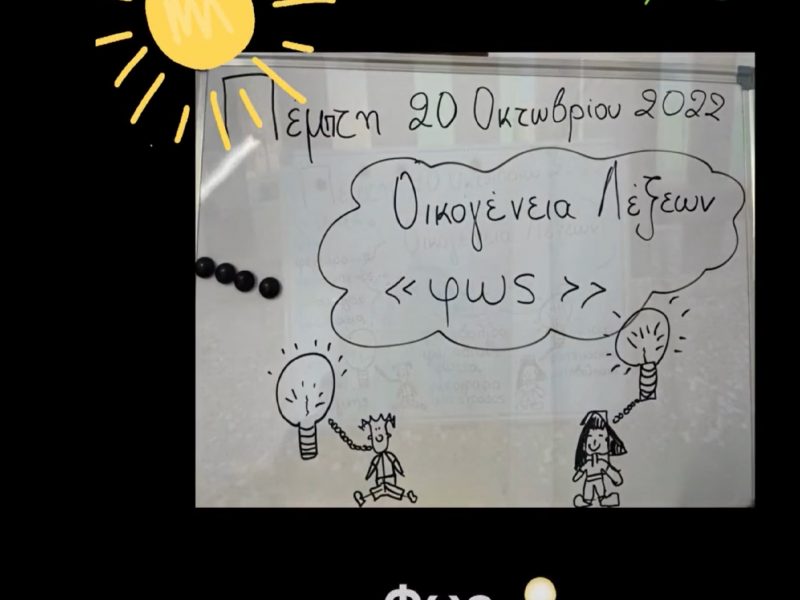 Πεμπτη 20 Οκτωβρίου 2022
Οικογένεια Λέξεων
«φως»
Φως